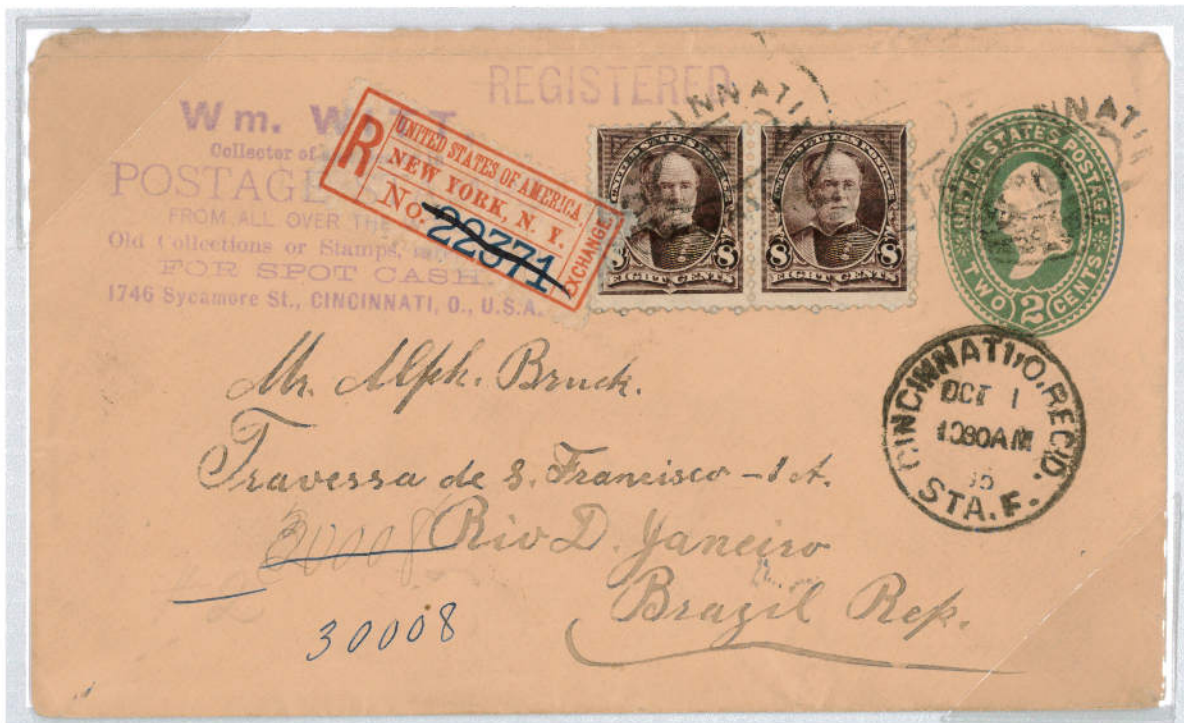 REGISTERED
Wm.
Collector of
POSTAGE
FROM ALL OVER THE
Old Collections or Stamps,
FOR SPOT CASH.
1746 Sycamore St., CINCINNATI, O., U.S.A.
R
UNITED STATES OF AMERICA,
NEW YORK, N. Y.
EXCHANGE.
No. 22371
8 8
EIGHT CENTS
8 8
EIGHT CENTS
UNITED STATES POSTAGE
TWO 2 CENTS
CINCINNATI, O. REC'D.
OCT 1
1030AM
95
STA. F.
Mr. Alph. Bruck.
Travessa de S. Francisco - 1 A.
30008
Rio D. Janeiro
Brazil Rep.
30008